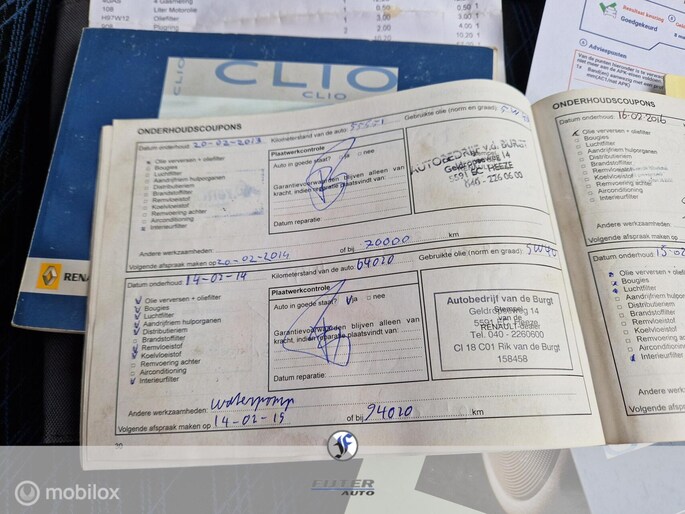 4 Gasmeting
108 Liter Motorolie
H97W12 Oliefilter
Plugring
CLIO
CLIO
Goedgekeurd
Adviespunten
ONDERHOUDSCOUPONS
Datum onderhoud: 20-02-2013
Kilometerstand van de auto:
Gebruikte olie (norm en graad): 5W40
Olie verversen + oliefilter
Bougies
Luchtfilter
Aandrijfriem hulporganen
Distributieriem
Brandstoffilter
Remvloeistof
Koelvloeistof
Remvoering achter
Airconditioning
Interieurfilter
Plaatwerkcontrole
Auto in goede staat? ja nee
Garantievoorwaarden blijven alleen van
kracht, indien reparatie plaatsvindt van:
Datum reparatie:
AUTOBEDRIJF v.d. BURGT
Geldropseweg 14
5591 EC HEEZE
040 - 226 06 00
Andere werkzaamheden:
Volgende afspraak maken op 20-02-2014 of bij 70000 km
Datum onderhoud: 14-02-14
Kilometerstand van de auto: 64020
Gebruikte olie (norm en graad): 5W40
Olie verversen + oliefilter
Bougies
Luchtfilter
Aandrijfriem hulporganen
Distributieriem
Brandstoffilter
Remvloeistof
Koelvloeistof
Remvoering achter
Airconditioning
Interieurfilter
Plaatwerkcontrole
Auto in goede staat? ja nee
Garantievoorwaarden blijven alleen van
kracht, indien reparatie plaatsvindt van:
Datum reparatie:
Autobedrijf van de Burgt
Geldropseweg 14
Stempel
5591 EC Heeze
van de
RENAULT-dealer
Tel. 040 - 2260600
CI 18 C01 Rik van de Burgt
158458
Andere werkzaamheden: waterpomp
Volgende afspraak maken op 14-02-15 of bij 94020 km
30
Datum onderhoud: 16-02-2016
Olie verversen + oliefilter
Bougies
Luchtfilter
Aandrijfriem hulporganen
Distributieriem
Brandstoffilter
Remvloeistof
Koelvloeistof
Remvoering achter
Airconditioning
Interieurfilter
Andere werkzaamheden:
Volgende afspraak maken
Datum onderhoud:
Olie verversen + oliefilter
Bougies
Luchtfilter
Aandrijfriem hulporganen
Distributieriem
Brandstoffilter
Remvloeistof
Koelvloeistof
Remvoering achter
Airconditioning
Interieurfilter
Andere werkzaamheden:
Volgende afspraak
mobilox
AUTO